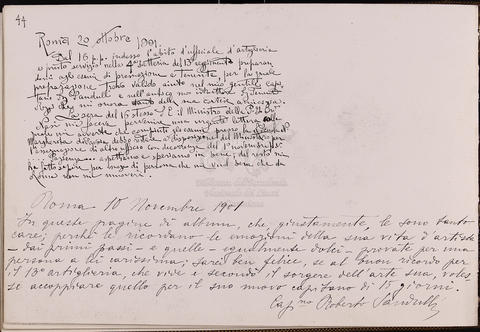 44
Roma 20 ottobre 1901.
Dal 16 p.p. indosso l'abito d'ufficiale d'artiglieria
e presto servizio nella 4ª batteria del 13º reggimento preparan
domi agli esami di promozione a Tenente, per la quale
preparazione trovo valido aiuto nel mio gentile capi
tano R. Sandulli e nell'antico mio istruttore Tenente
che mi onora tanto della sua cortese amicizia.
La sera del 16 stesso S.E. il Ministro della P.
mi fa pervenire una urgente lettera colla
quale mi avverte che compiuti gli esami presso la
Margherita debbo restare a disposizione del Ministero per
l'esecuzione di altro ufficio con decorrenza del 1º novembre
aspettiamo e speriamo in bene; del resto mi
ha fatto per bocca di persona che mi vuol bene che da
Roma non mi muoverò.
Roma 18 Novembre 1901
In queste pagine di album, che, giustamente, le sono tanto
care, perchè le ricordano le emozioni della sua vita d'artista
- dai primi passi - e quelle - egualmente dolci - provate per una
persona a lei carissima; sarei ben felice, se al buon ricordo per
il 13º artiglieria, che vide e secondò il sorgere dell'arte sua, volesse
accoppiare quello per il suo nuovo capitano di 15 giorni.
Cap.no Roberto Sandulli